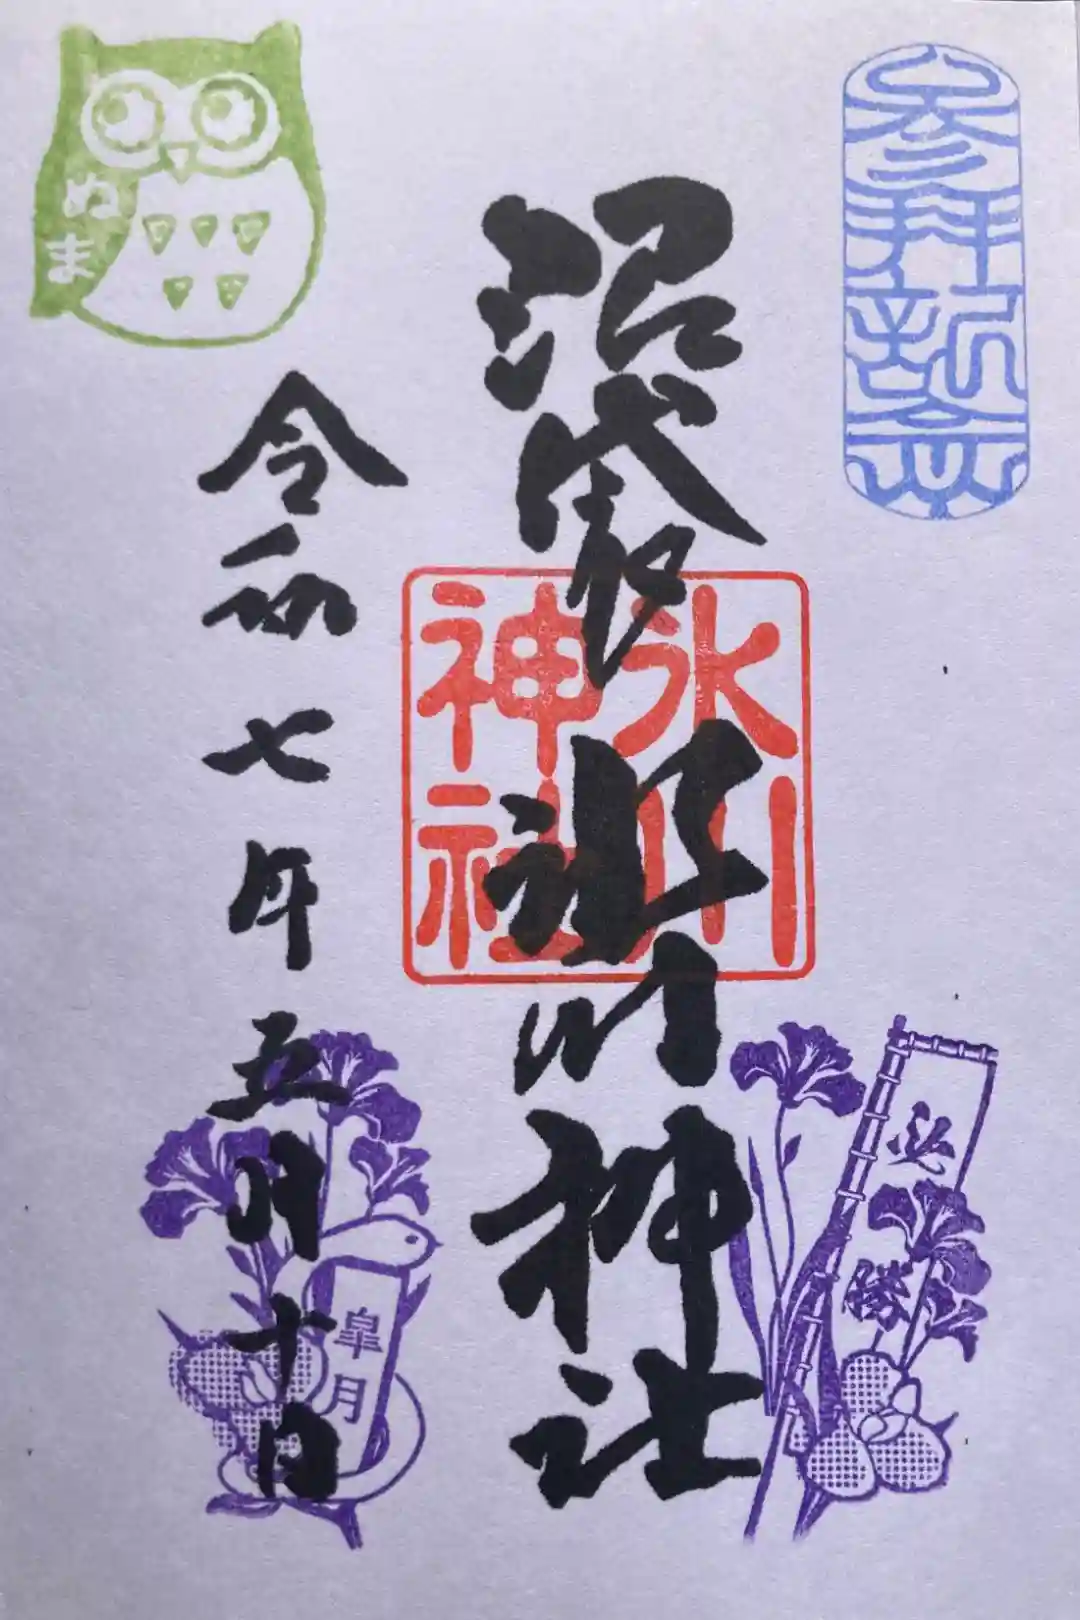 参拝記念
沼袋
氷川神社
氷川
神社
勝
ぬま
令和七年五月十日
皐月